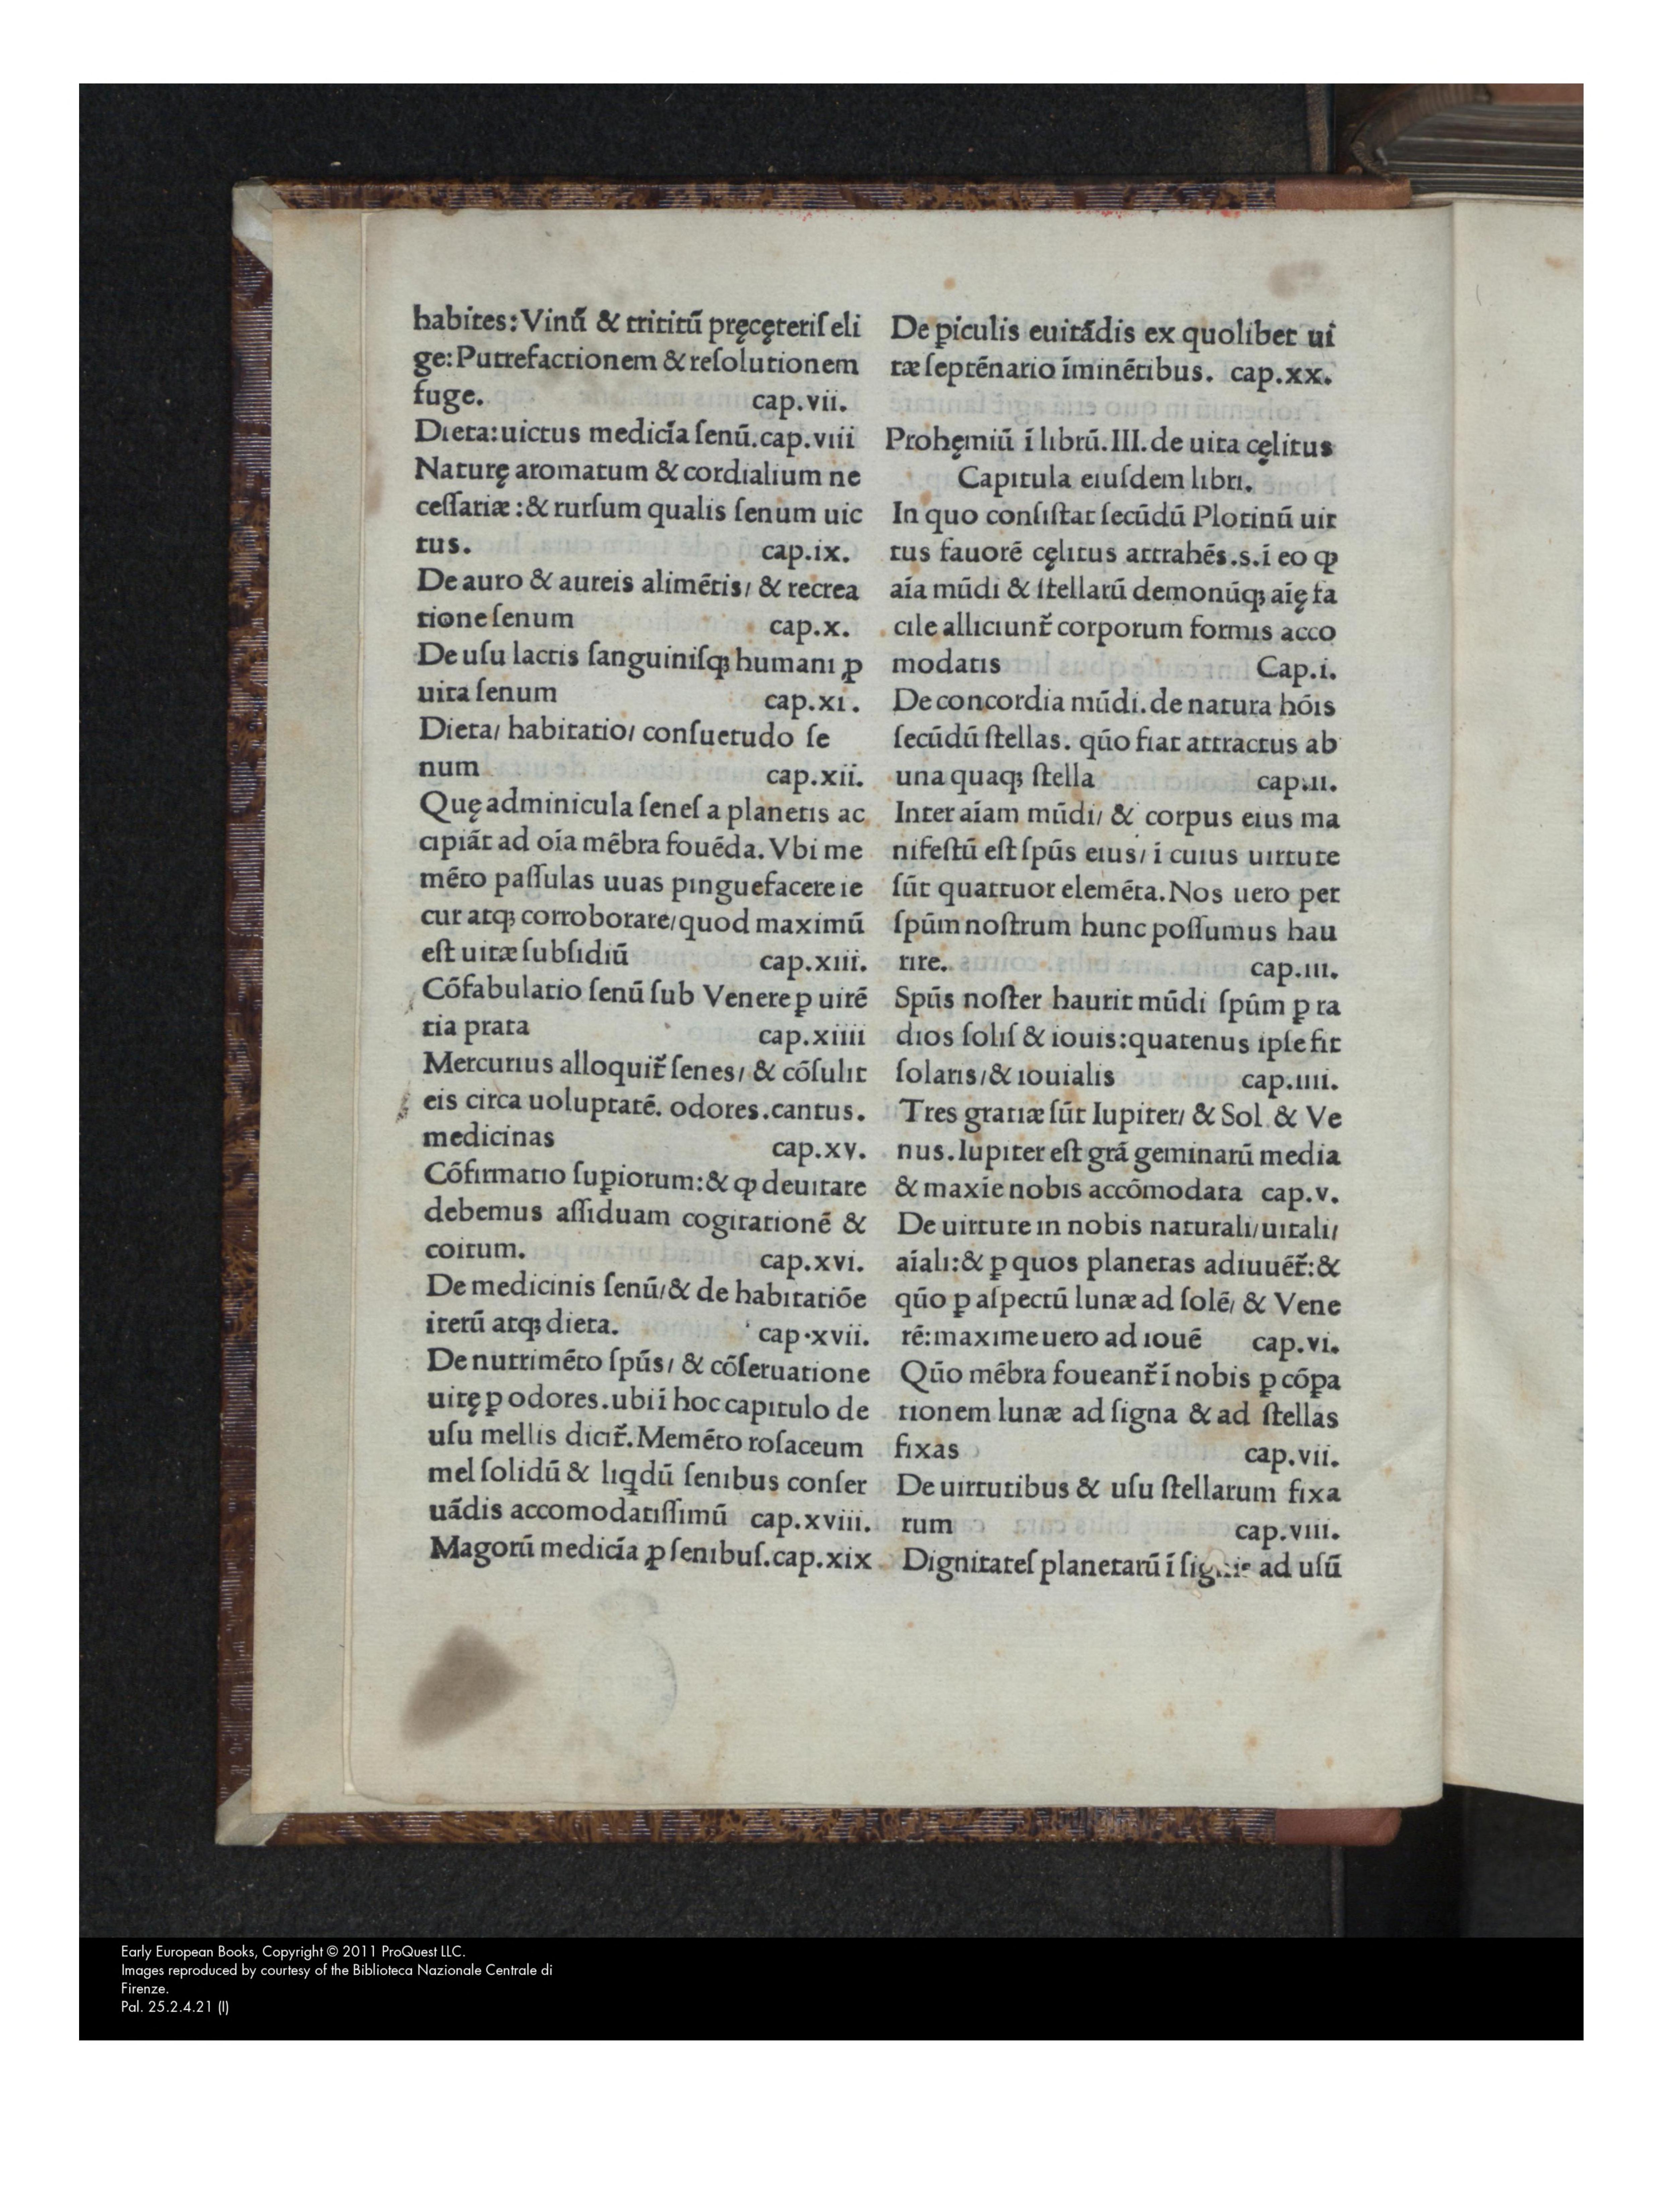 habites: Vinū & trititū pręcęteriſ eli
ge: Putrefactionem & reſolutionem
fuge. cap.vii.
Dieta: uictus medicīa ſenū. cap.viii
Naturę aromatum & cordialium ne
ceſſariæ: & rurſum qualis ſenum uic
tus. cap.ix.
De auro & aureis alimētis/ & recrea
tione ſenum cap.x.
De uſu lactis ſanguiniſqꝫ humani ꝓ
uita ſenum cap.xi.
Dieta/ habitatio/ conſuetudo ſe
num cap.xii.
Quę adminicula ſeneſ a planetis ac
cipiāt ad oīa mēbra fouēda. Vbi me
mēto paſſulas uuas pinguefacere ie
cur atqꝫ corroborare/ quod maximū
eſt uitæ ſubſidiū cap.xiii.
Cōfabulatio ſenū ſub Venere ꝑ uirē
tia prata cap.xiiii
Mercurius alloquit̄ ſenes/ & cōſulit
eis circa uoluptatē. odores. cantus.
medicinas cap.xv.
Cōfirmatio ſuꝑiorum: & ꝙ deuitare
debemus aſſiduam cogitationē &
coitum. cap.xvi.
De medicinis ſenū/ & de habitatiōe
iterū atqꝫ dieta. cap.xvii.
De nutrimēto ſpūs/ & cōſeruatione
uitę ꝑ odores. ubi ī hoc capitulo de
uſu mellis dicit̄. Memēto roſaceum
mel ſolidū & liꝗdū ſenibus conſer
uādis accomodatiſſimū cap.xviii.
Magorū medicīa ꝓ ſenibuſ. cap.xix
De ꝑiculis euitādis ex quolibet ui
tæ ſeptēnario īminētibus. cap.xx.
Prohęmiū ī librū. III. de uita cęlitus
Capitula eiuſdem libri.
In quo conſiſtat ſecūdū Plotinū uir
tus fauorē cęlitus attrahēs. s. ī eo ꝙ
aīa mūdi & ſtellarū demonūqꝫ aīę fa
cile alliciunt̄ corporum formis acco
modatis Cap.i.
De concordia mūdi. de natura hōis
ſecūdū ſtellas. qūo fiat attractus ab
una quaqꝫ ſtella cap.ii.
Inter aīam mūdi/ & corpus eius ma
nifeſtū eſt ſpūs eius/ ī cuius uirtute
ſūt quattuor elemēta. Nos uero per
ſpūm noſtrum hunc poſſumus hau
rire. cap.iii.
Spūs noſter haurit mūdi ſpūm ꝑ ra
dios ſoliſ & iouis: quatenus ipſe fit
ſolaris/ & iouialis cap.iiii.
Tres gratiæ ſūt Iupiter/ & Sol & Ve
nus. Iupiter eſt grā geminarū media
& maxīe nobis accōmodata cap.v.
De uirtute in nobis naturali/ uitali/
aīali: & ꝑ quos planetas adiuuēt̄: &
qūo ꝑ aſpectū lunæ ad ſolē/ & Vene
rē: maxime uero ad iouē cap.vi.
Qūo mēbra foueant̄ ī nobis ꝑ cōpa
tionem lunæ ad ſigna & ad ſtellas
fixas cap.vii.
De uirtutibus & uſu ſtellarum fixa
rum cap.viii.
Dignitateſ planetarū ī ſignis ad uſū
Early European Books, Copyright © 2011 ProQuest LLC.
Images reproduced by courtesy of the Biblioteca Nazionale Centrale di
Firenze.
Pal. 25.2.4.21 (I)